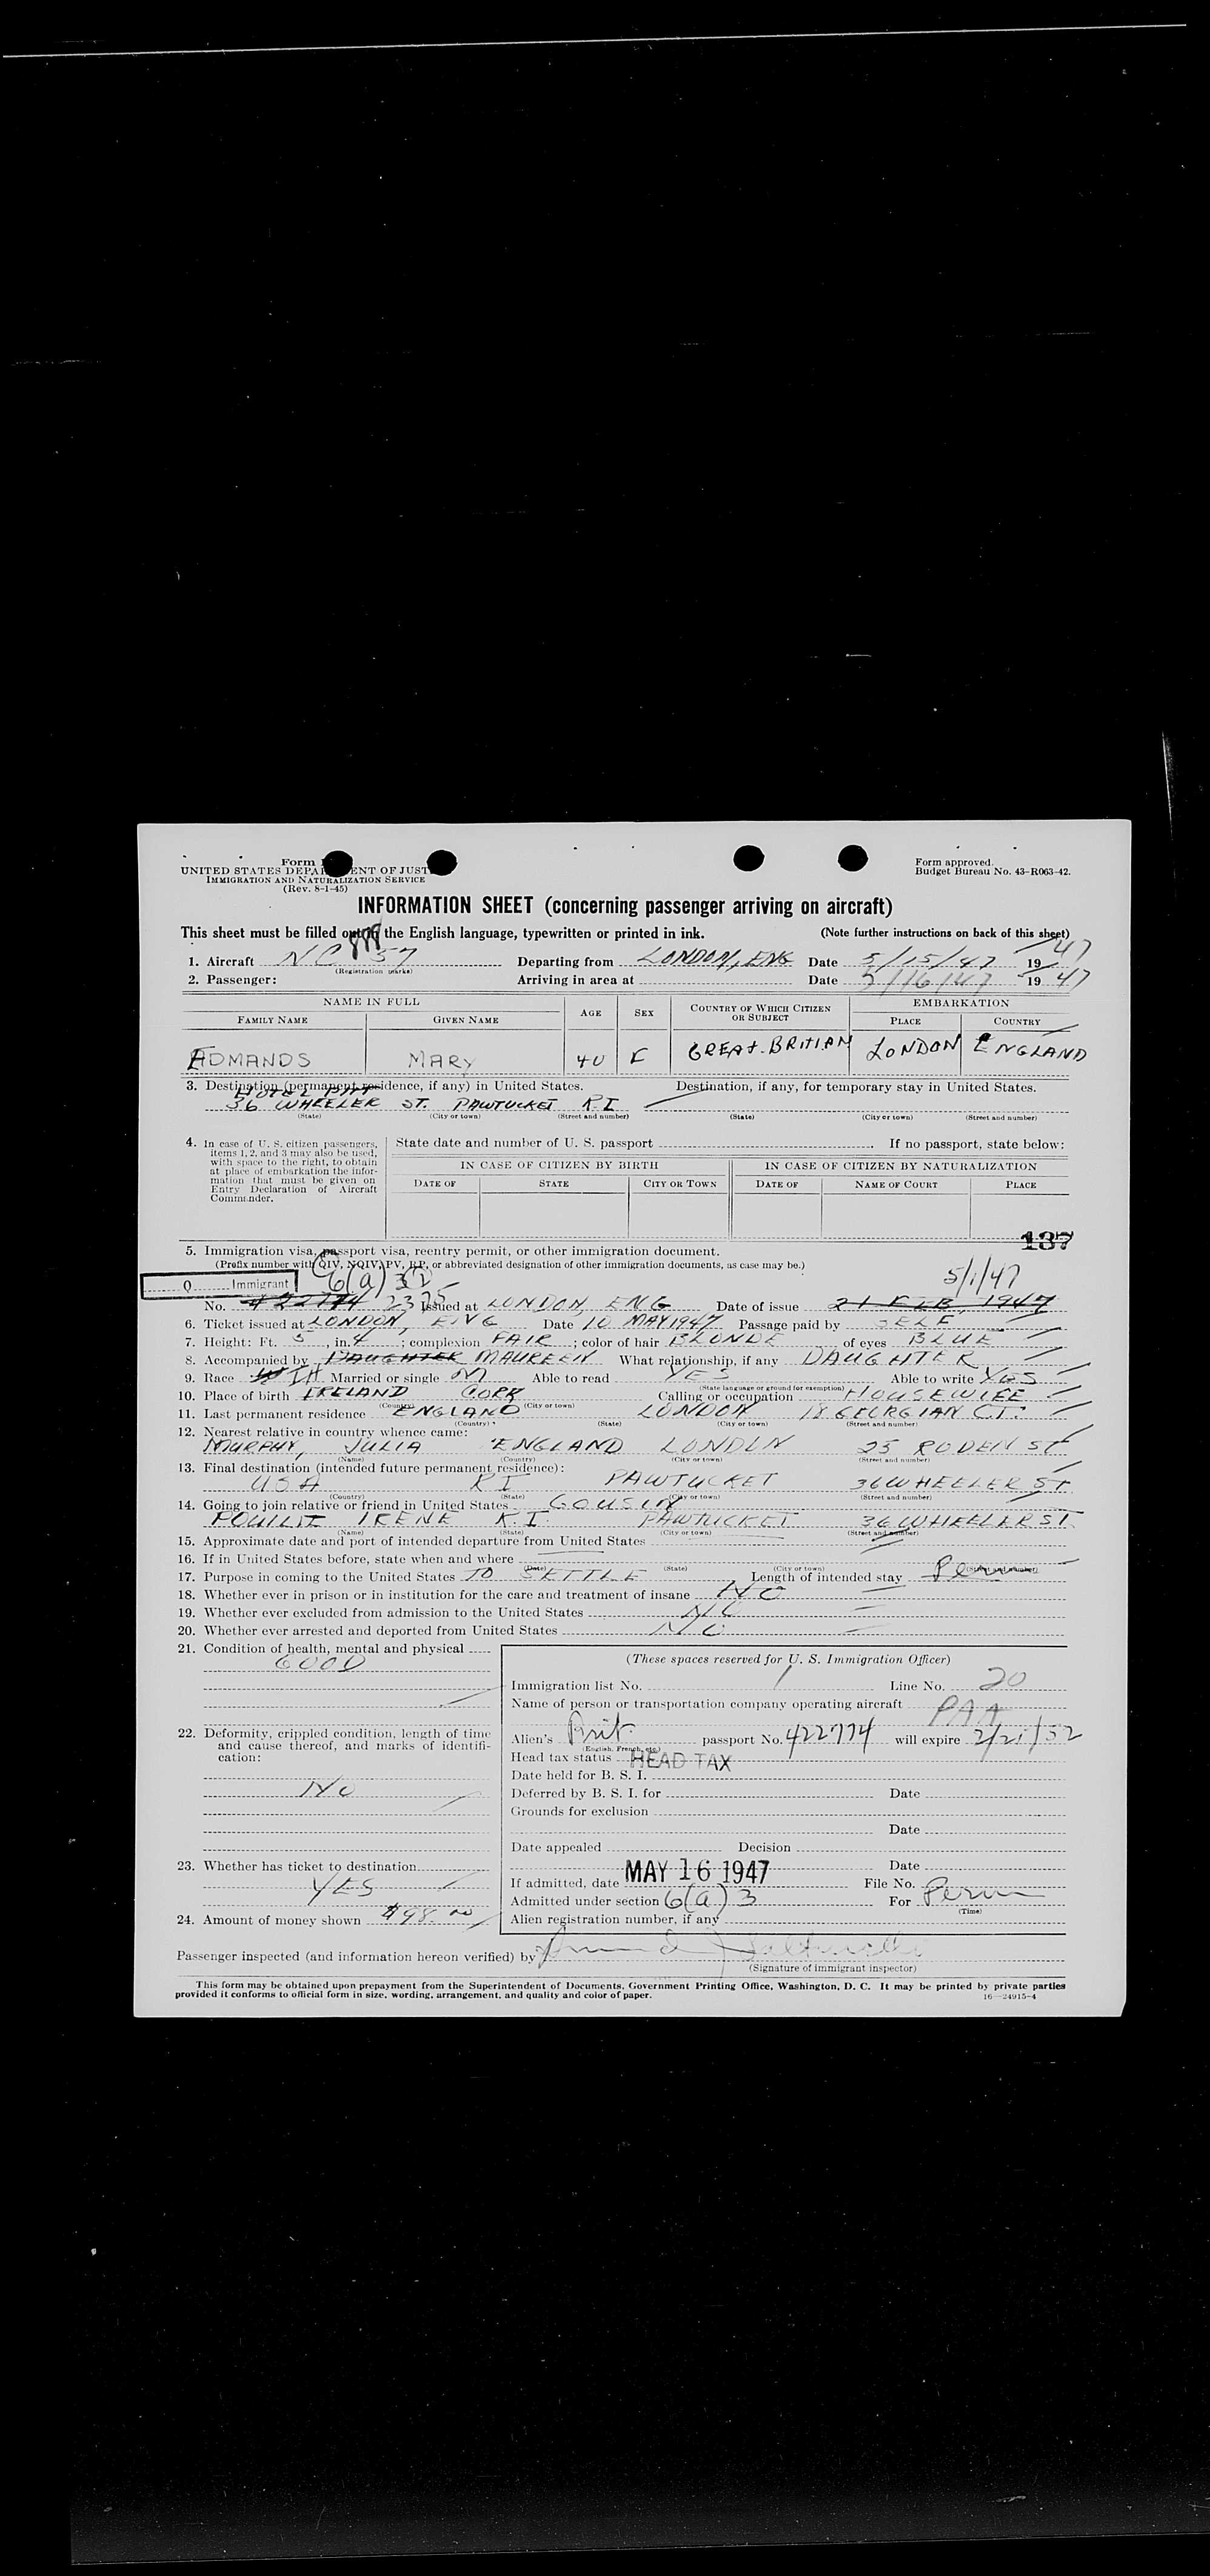 Form
UNITED STATES DEPA ENT OF JUST
IMMIGRATION AND NATURALIZATION SERVICE
(Rev. 8-1-45)
Form approved.
Budget Bureau No. 43-R063-42.
INFORMATION SHEET (concerning passenger arriving on aircraft)
This sheet must be filled out in the English language, typewritten or printed in ink. (Note further instructions on back of this sheet)
1. Aircraft NC 57 Departing from LONDON, ENG Date 5/15/47 19 47
(Registration marks)
2. Passenger: Arriving in area at Date 5/16/47 19 47
NAME IN FULL AGE SEX COUNTRY OF WHICH CITIZEN OR SUBJECT EMBARKATION
FAMILY NAME GIVEN NAME PLACE COUNTRY
EDMANDS MARY 40 F GREAT-BRITIAN LONDON ENGLAND
3. Destination (permanent residence, if any) in United States. Destination, if any, for temporary stay in United States.
HOTEL
36 WHEELER ST. PAWTUCKET R.I
(State) (City or town) (Street and number) (State) (City or town) (Street and number)
4. In case of U. S. citizen passengers, items 1, 2, and 3 may also be used, with space to the right, to obtain at place of embarkation the information that must be given on Entry Declaration of Aircraft Commander.
State date and number of U. S. passport If no passport, state below:
IN CASE OF CITIZEN BY BIRTH IN CASE OF CITIZEN BY NATURALIZATION
DATE OF STATE CITY OR TOWN DATE OF NAME OF COURT PLACE
137
5. Immigration visa, passport visa, reentry permit, or other immigration document.
(Prefix number with QIV, NQIV, PV, RP, or abbreviated designation of other immigration documents, as case may be.)
Q Immigrant 6(a)3 5/1/47
No. 2375 Issued at LONDON, ENG Date of issue 21 FEB, 1947
6. Ticket issued at LONDON, ENG Date 10 MAY 1947 Passage paid by SELF
7. Height: Ft. 5, in. 4; complexion FAIR; color of hair BLONDE of eyes BLUE
8. Accompanied by DAUGHTER MAUREEN What relationship, if any DAUGHTER
9. Race Married or single M Able to read YES Able to write YES
(State language or ground for exemption)
10. Place of birth IRELAND CORK Calling or occupation HOUSEWIFE
(Country) (City or town)
11. Last permanent residence ENGLAND LONDON 18 GEORGIAN CT.
(Country) (State) (City or town) (Street and number)
12. Nearest relative in country whence came:
MURPHY, JULIA ENGLAND LONDON 25 RODEN ST
(Name) (Country) (City or town) (Street and number)
13. Final destination (intended future permanent residence):
USA RI PAWTUCKET 36 WHEELER ST
(Country) (State) (City or town) (Street and number)
14. Going to join relative or friend in United States COUSIN
IRENE R.I. PAWTUCKET 36 WHEELER ST
(Name) (State) (City or town) (Street and number)
15. Approximate date and port of intended departure from United States
16. If in United States before, state when and where
(Date) (State) (City or town) (Street and number)
17. Purpose in coming to the United States TO SETTLE Length of intended stay Per
18. Whether ever in prison or in institution for the care and treatment of insane NO
19. Whether ever excluded from admission to the United States NO
20. Whether ever arrested and deported from United States NO
21. Condition of health, mental and physical
GOOD
22. Deformity, crippled condition, length of time and cause thereof, and marks of identification:
NO
23. Whether has ticket to destination
YES
24. Amount of money shown $98.00
(These spaces reserved for U. S. Immigration Officer)
Immigration list No. 1 Line No. 20
Name of person or transportation company operating aircraft PAA
Alien's Brit passport No. 422774 will expire 2/21/52
(English, French, etc.)
Head tax status HEAD TAX
Date held for B. S. I.
Deferred by B. S. I. for Date
Grounds for exclusion
Date
Date appealed Decision
Date
If admitted, date MAY 16 1947 File No.
Admitted under section 6(a)3 For Perm
(Time)
Alien registration number, if any
Passenger inspected (and information hereon verified) by
(Signature of immigrant inspector)
This form may be obtained upon prepayment from the Superintendent of Documents, Government Printing Office, Washington, D. C. It may be printed by private parties
provided it conforms to official form in size, wording, arrangement, and quality and color of paper. 16—24915-4